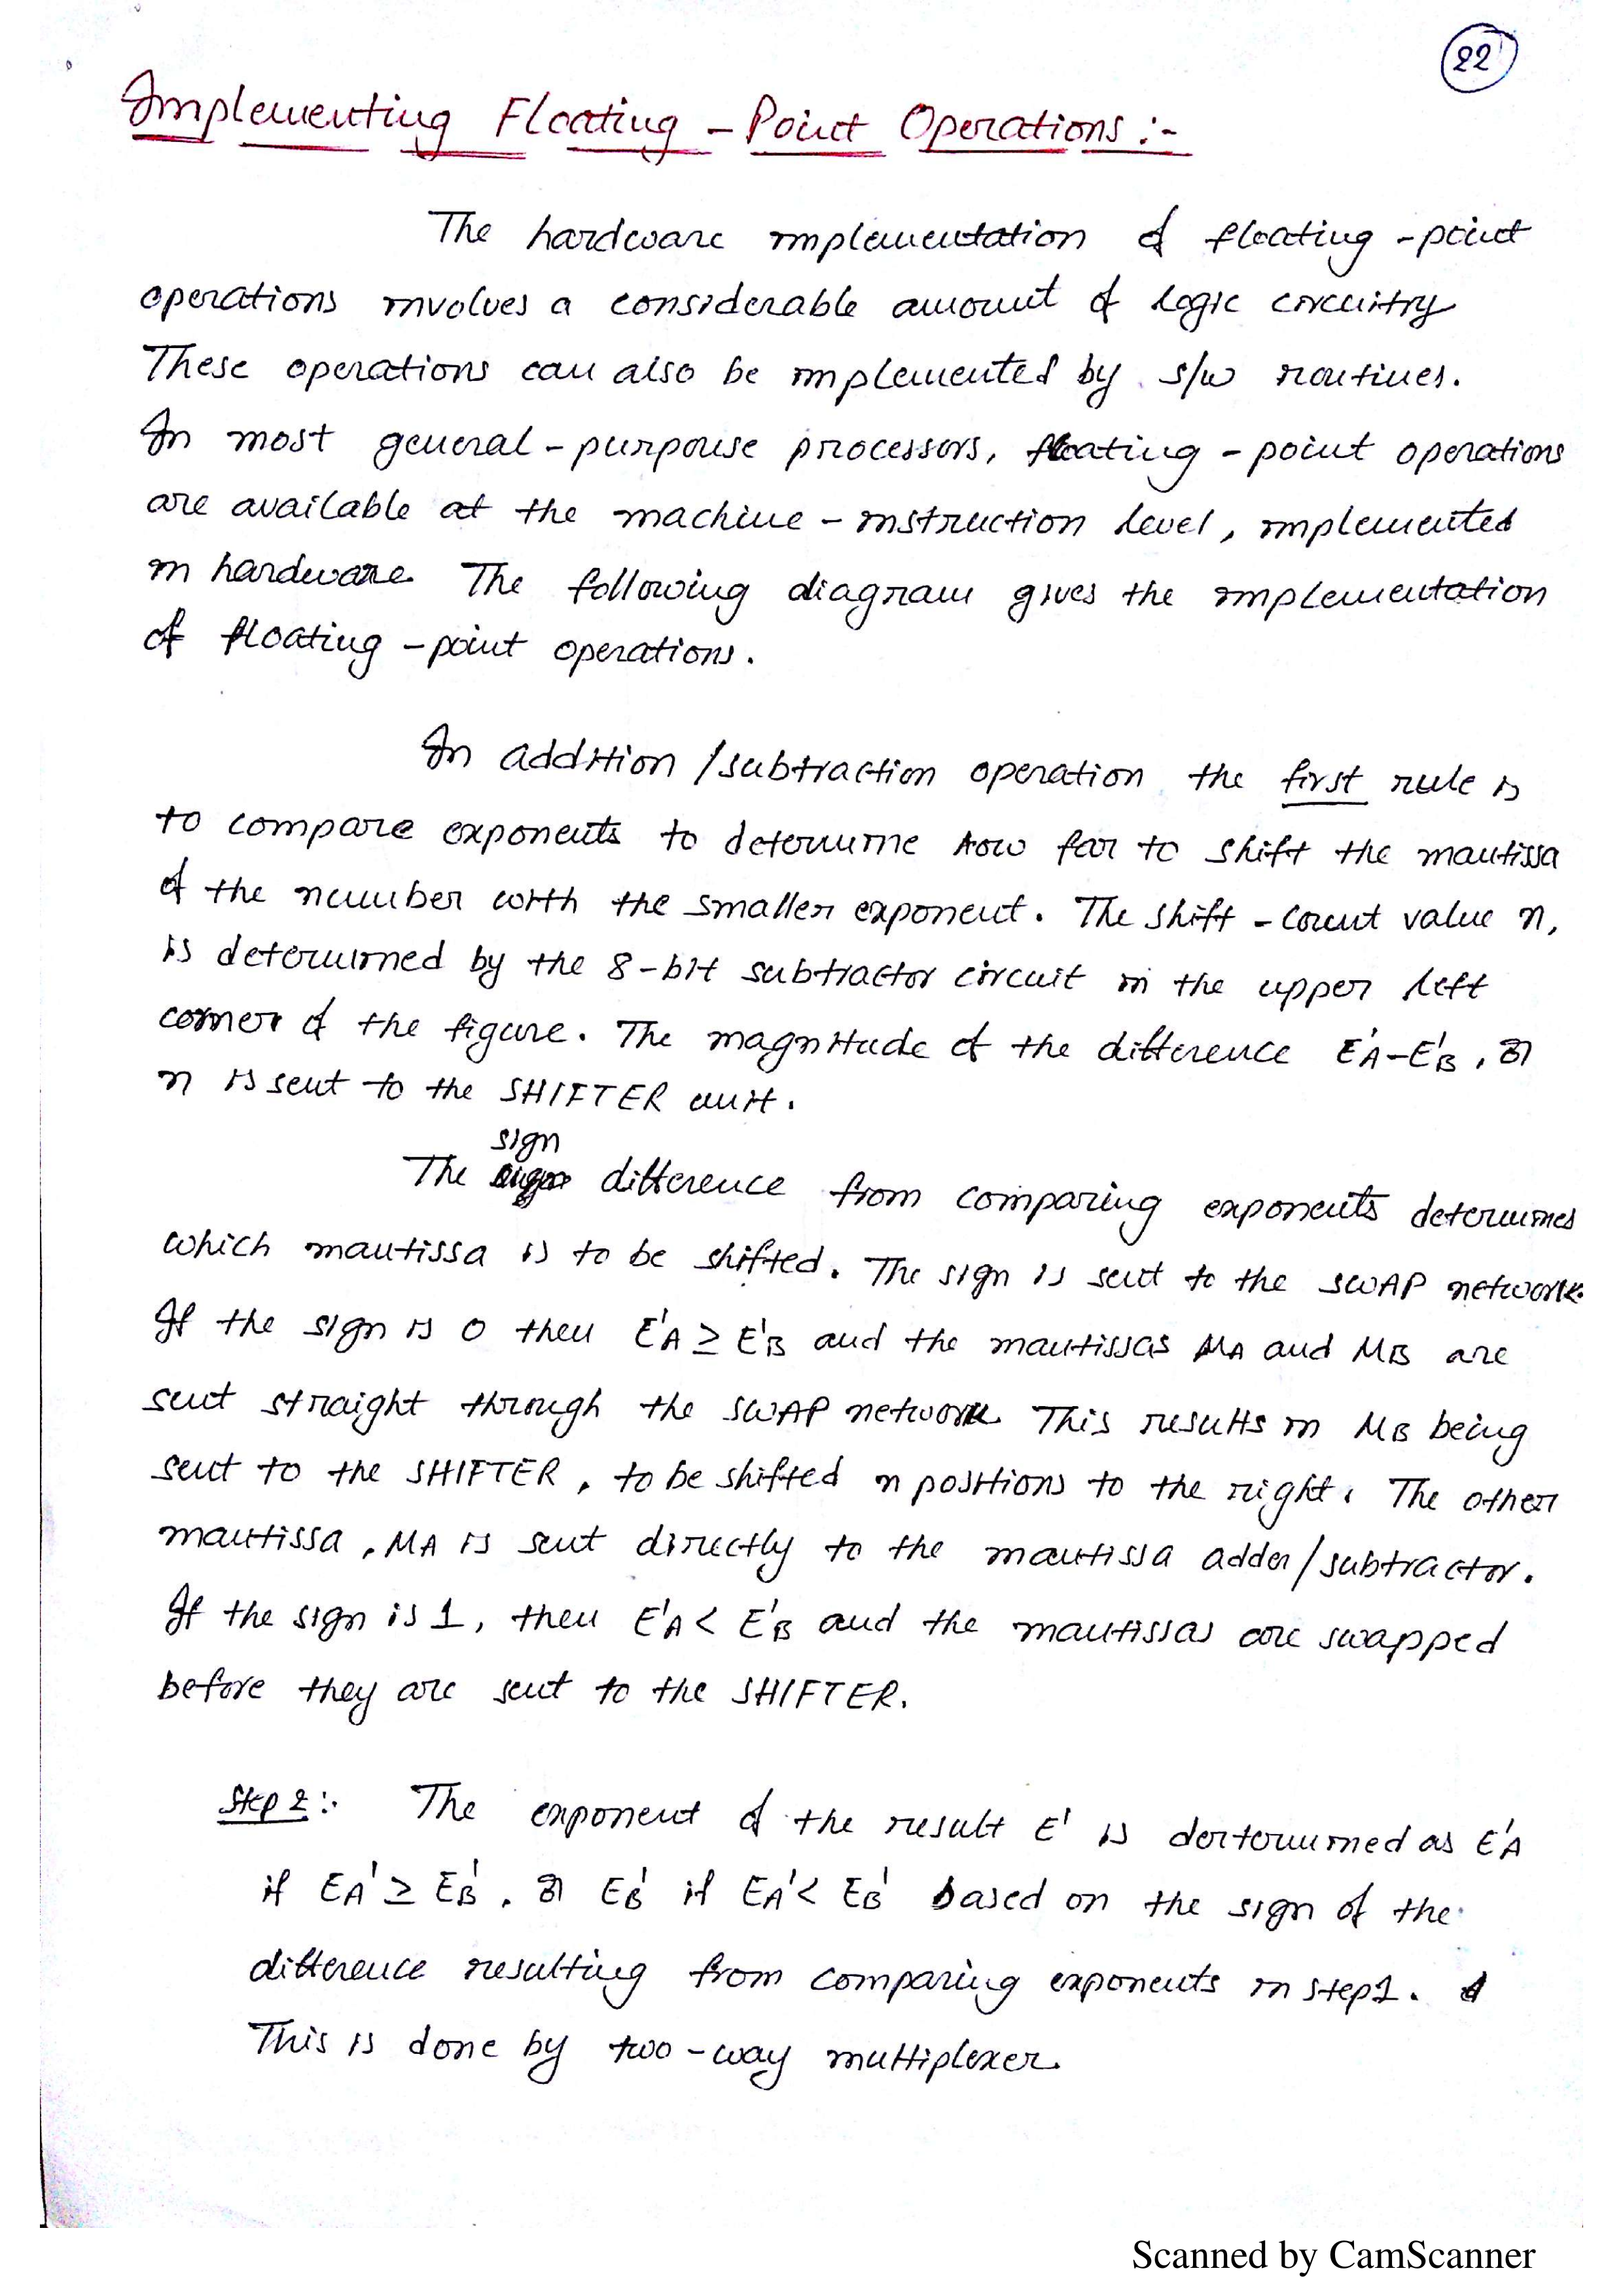 22
Implementing Floating - Point Operations :-
The hardware implementation of floating - point
operations involves a considerable amount of logic circuitry
These operations can also be implemented by s/w routines.
In most general - purpouse processors, floating - point operations
are available at the machine - instruction level, implemented
in hardware. The following diagram gives the implementation
of floating - point operations.
In addition /subtraction operation the first rule is
to compare exponents to determine how far to shift the mantissa
of the number with the smaller exponent. The shift - count value n,
is determined by the 8-bit subtractor circuit in the upper left
corner of the figure. The magnitude of the difference E'A-E'B, or
n is sent to the SHIFTER unit.
sign
The difference from comparing exponents determines
which mantissa is to be shifted. The sign is sent to the SWAP network.
If the sign is 0 then E'A ≥ E'B and the mantissas MA and MB are
sent straight through the SWAP network. This results in MB being
sent to the SHIFTER, to be shifted n positions to the right. The other
mantissa, MA is sent directly to the mantissa adder/subtractor.
If the sign is 1, then E'A < E'B and the mantissas are swapped
before they are sent to the SHIFTER.
Step 2:- The exponent of the result E' is dertermined as E'A
if EA' ≥ EB', or EB' if EA' < EB' based on the sign of the
difference resulting from comparing exponents in step1.
This is done by two-way multiplexer.
Scanned by CamScanner